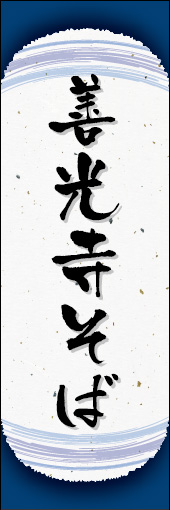 善光寺そば